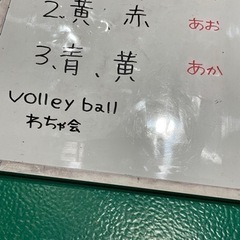 2.黄、赤 あお
3.青、黄 あか
volley ball
わちゃ会